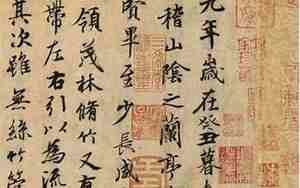 九年歲在癸丑暮
稽山陰之蘭亭
賢畢至少長咸
領茂林脩竹又有
帶左右引以為流
其次雖無絲竹管